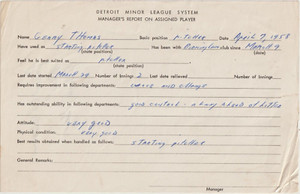 DETROIT MINOR LEAGUE SYSTEM
MANAGER'S REPORT ON ASSIGNED PLAYER
Name Gerry Thomas Basic position pitcher Date April 7, 1958
Have used as starting pitcher Has been with club since March 9
(state position) (date)
Feel he is best suited as pitcher
(state position)
Last date started March 29 Number of innings 2 Last date finished Number of innings
Requires improvement in following departments
Has outstanding ability in following departments good control - always ahead of hitter
Attitude very good
Physical condition very good
Best results obtained when handled as follows: starting pitcher
General Remarks:
Manager